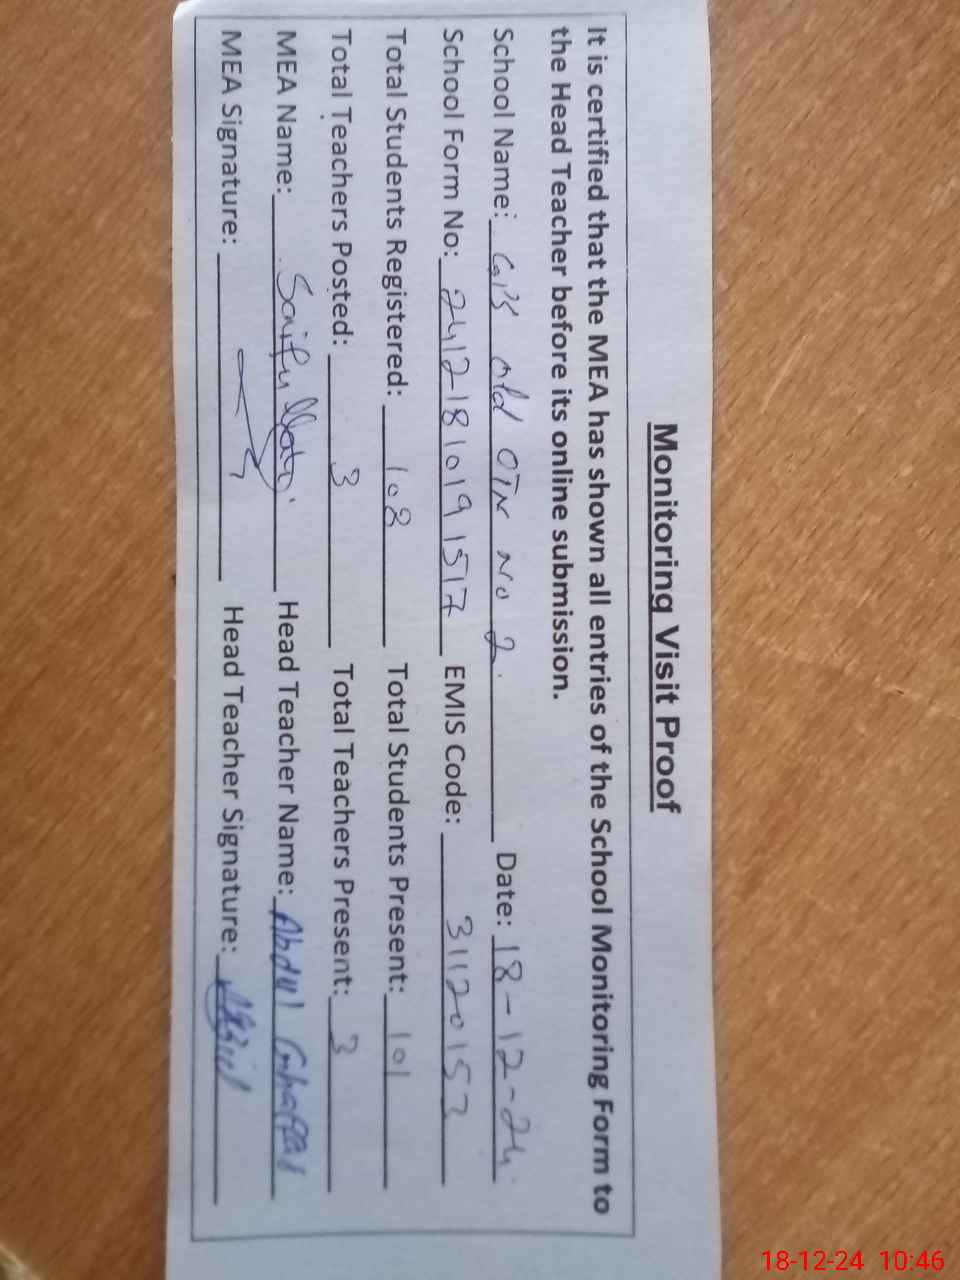 Monitoring Visit Proof
It is certified that the MEA has shown all entries of the School Monitoring Form to
the Head Teacher before its online submission.
School Name: old OTN No 2 Date: 18-12-24
School Form No: 24121810191517 EMIS Code: 31120153
Total Students Registered: 108 Total Students Present: 101
Total Teachers Posted: 3 Total Teachers Present: 3
MEA Name: Saifullah Head Teacher Name: Abdul Ghaffar
MEA Signature: Head Teacher Signature:
18-12-24 10:46